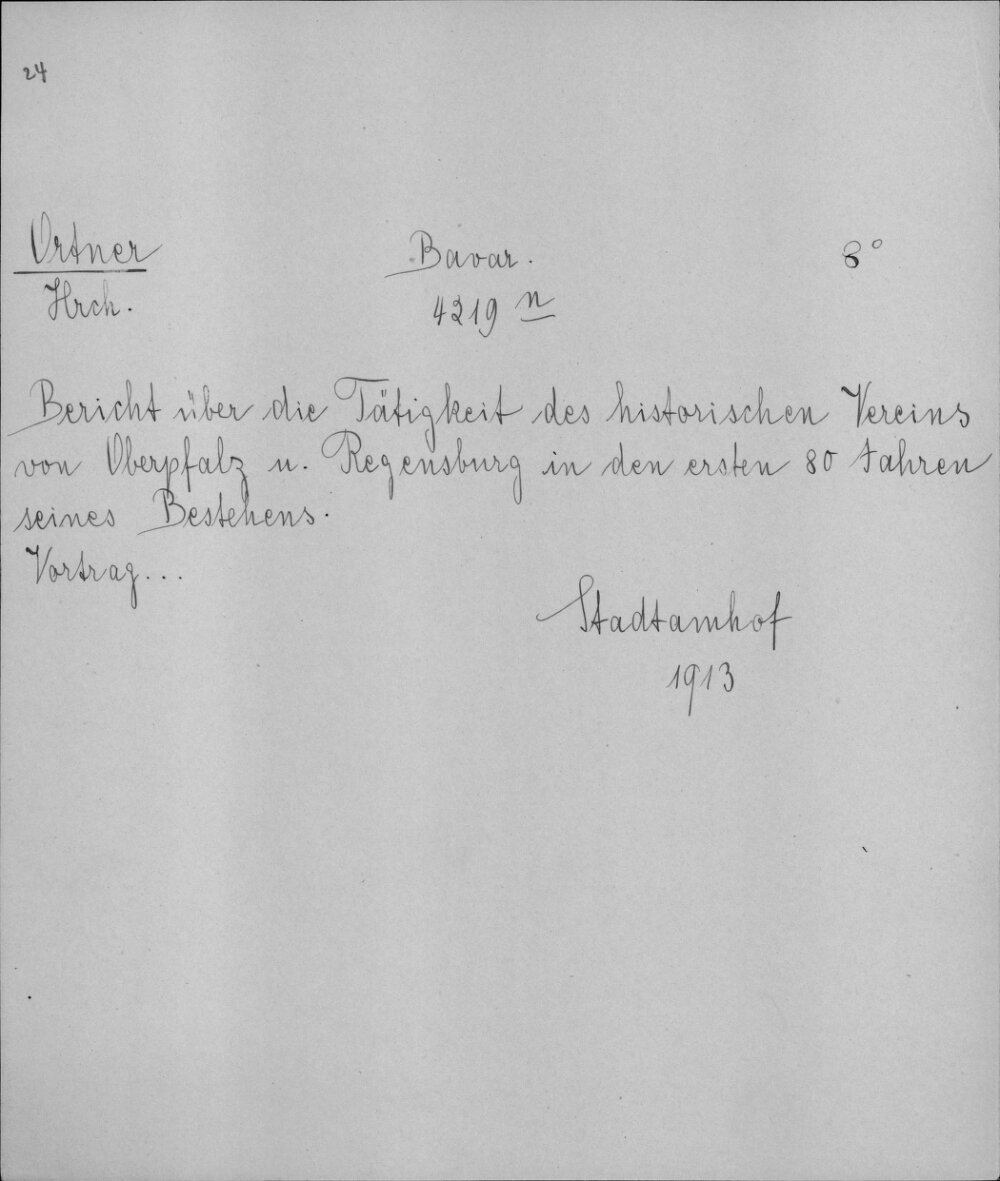 24
Ortner Bavar. 8°
Hrch. 4219 n
Bericht über die Tätigkeit des historischen Vereins
von Oberpfalz u. Regensburg in den ersten 80 Jahren
seines Bestehens.
Vortrag...
Stadtamhof
1913